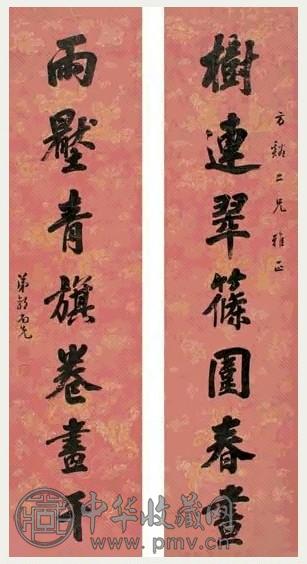 方谿二兄雅正
樹連翠篠圍春晝
雨壓青旗卷畫
弟郭尚先
中华收藏网
www.pmv.cn